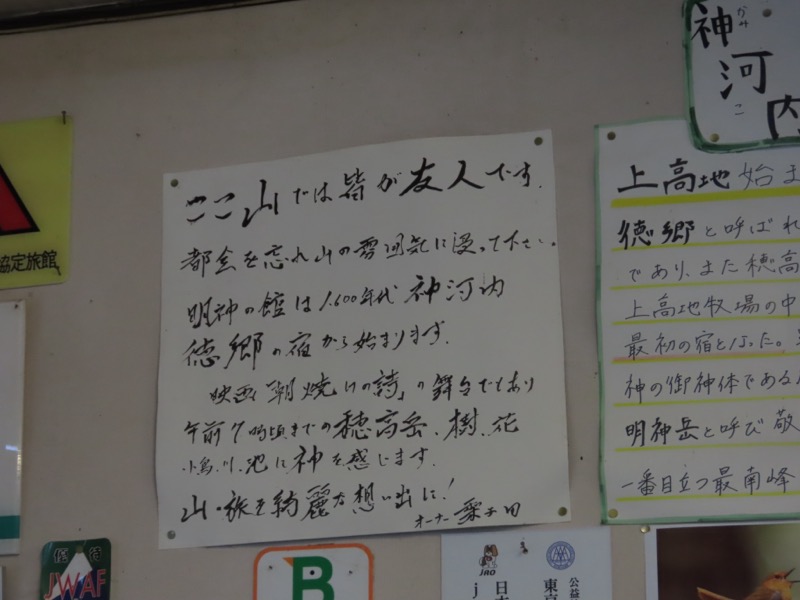 神河内
かみ
こ
協定旅館
ここ山では皆が友人です.
都会を忘れ山の雰囲気に浸って下さい。
明神の館は1,600年代 神河内
徳郷の宿から始まります.
映画「朝焼けの詩」の舞台でもあり
午前7時頃までの穂高岳、樹、花
小鳥、川、池に神を感じます.
山・旅を綺麗な想い出に!
オーナー
上高地 始ま
徳郷と呼ばれ
であり、また穂高
上高地牧場の中
最初の宿となった。
神の御神体である
明神岳と呼び敬
一番目立つ最南峰
優待
JWAF
B
JAO
日本
j
東京
公益